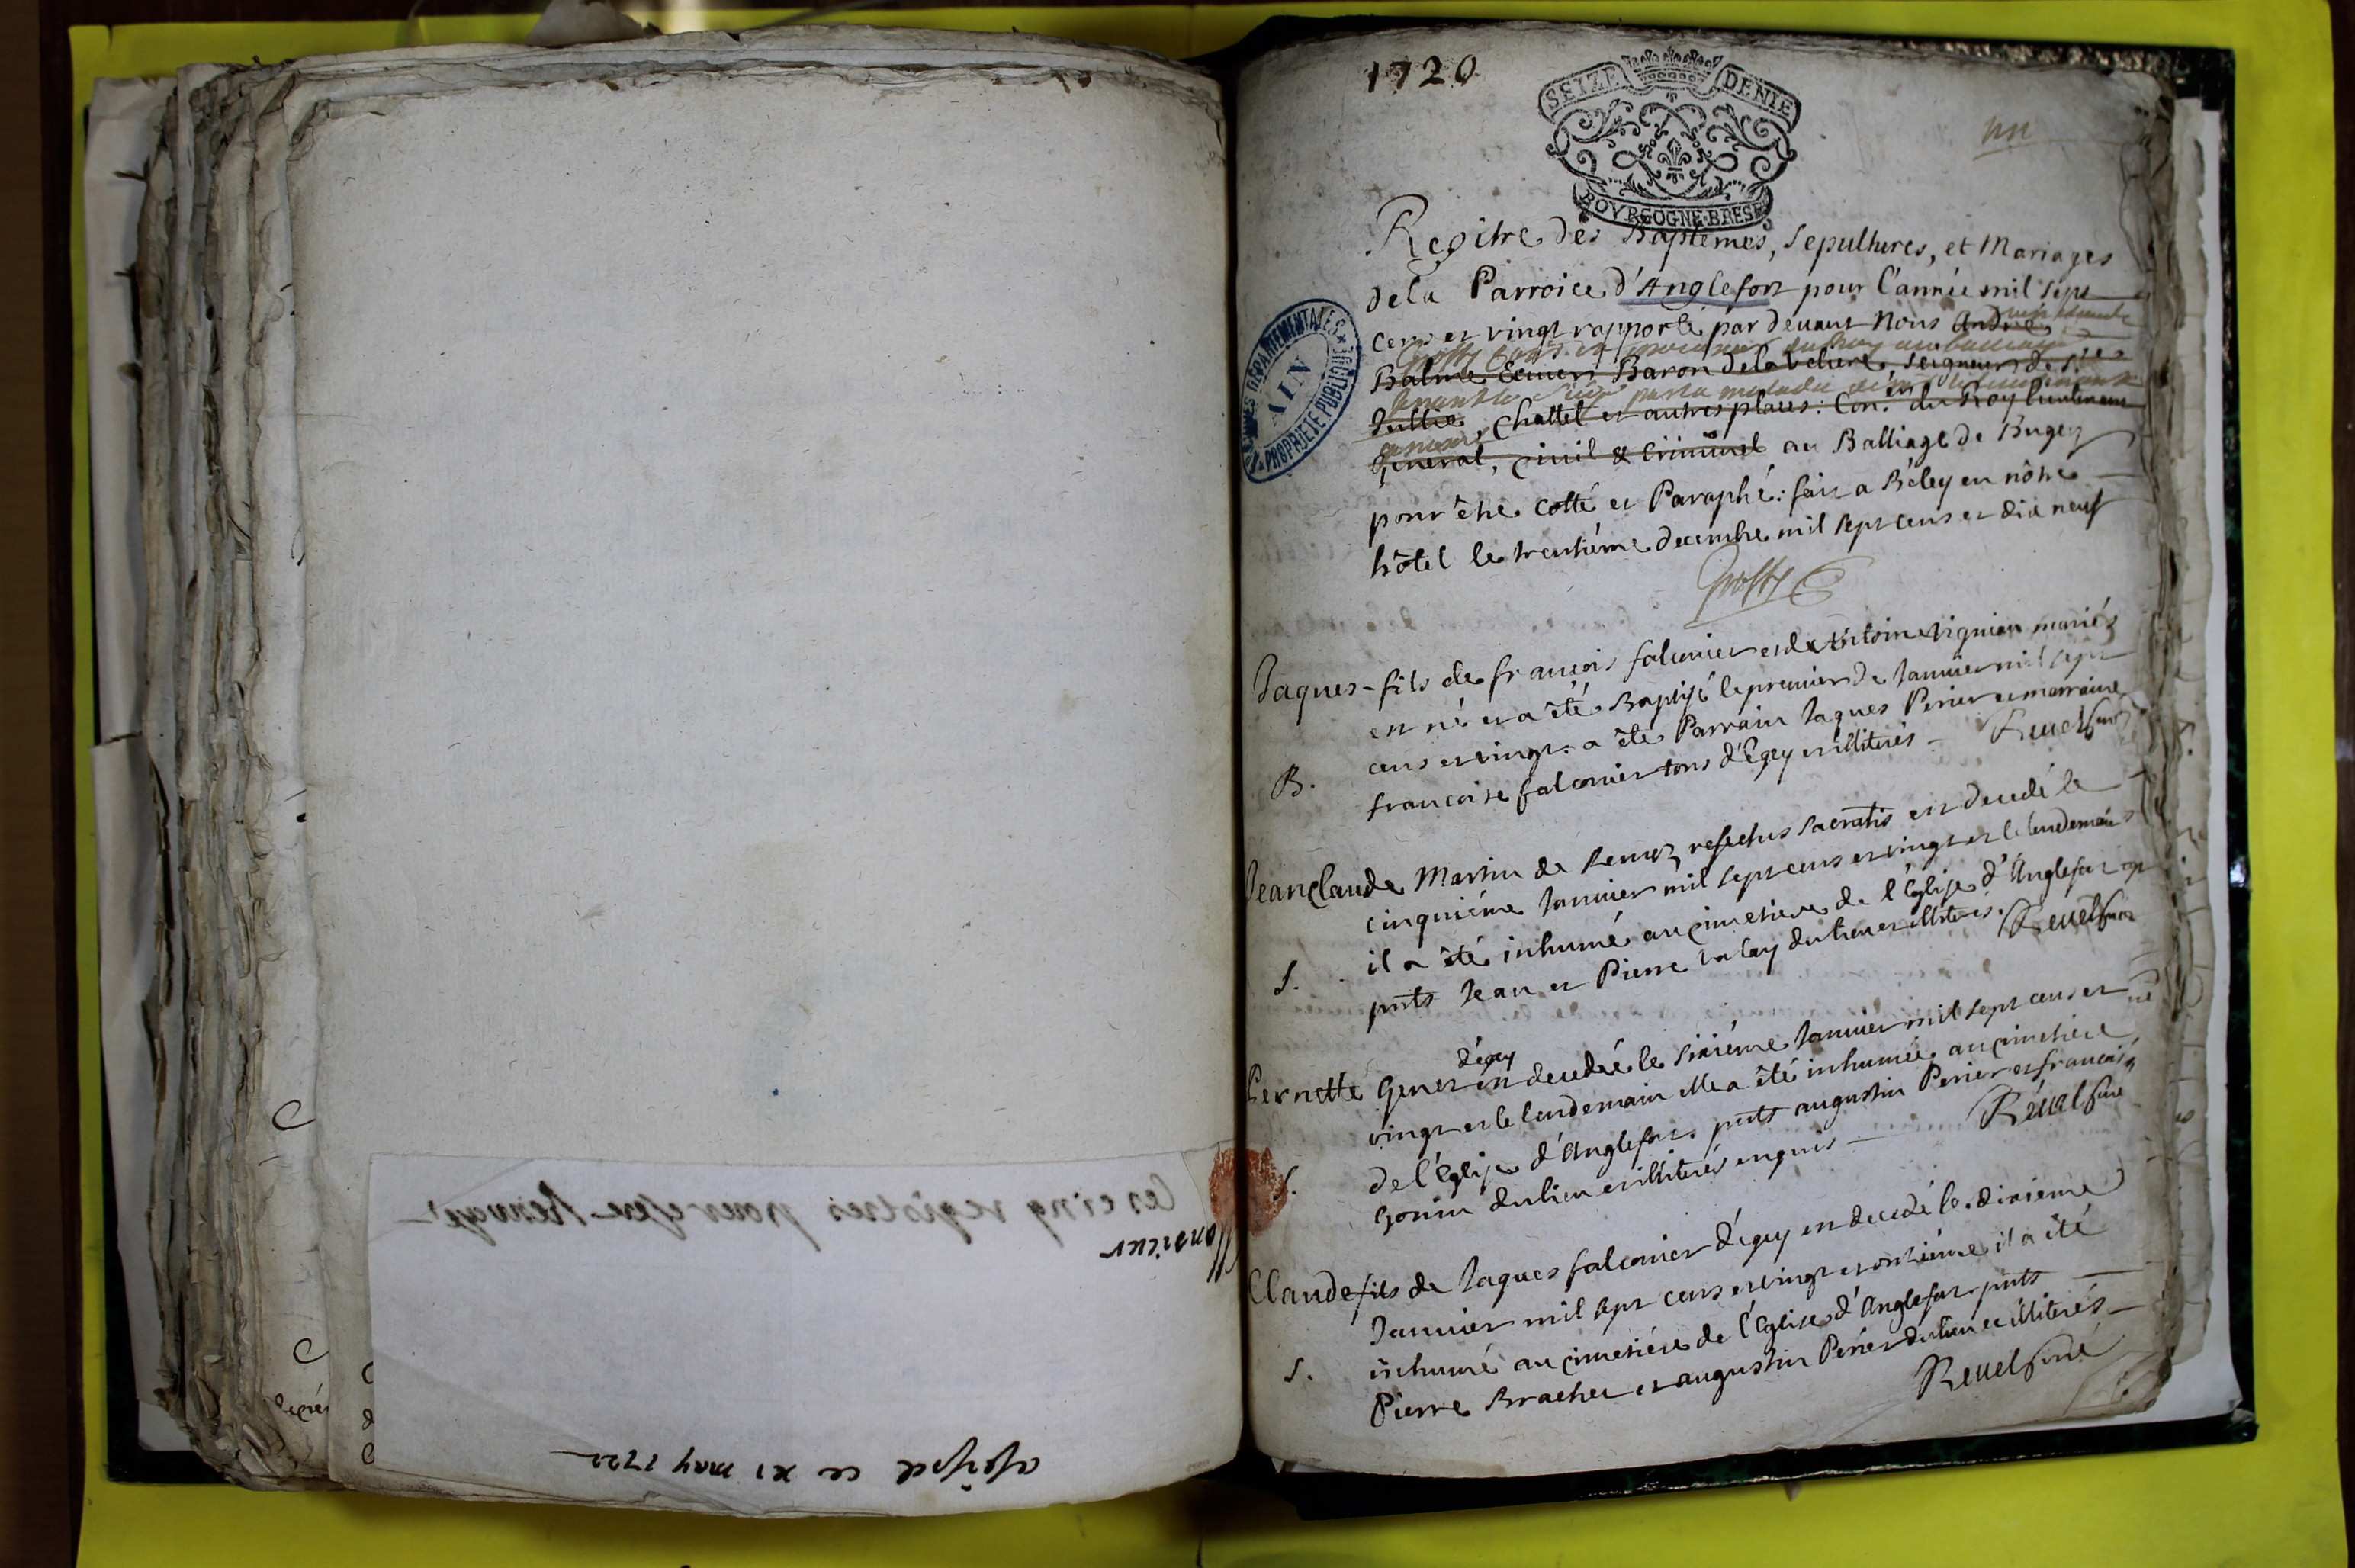 Les cinq registres pour estre
Monsieur
ce xi may 1722
1720
SEIZE DENIE
BOVRGOGNE·BRESE
un
Regitre des Baptemes, Sepultures, et Mariages
de la Parroice d'Anglefort pour l'année mil sept
cens et vingt rapporté par devant Nous André
Balme Ecuier Baron de la velliere, seigneur de Ste
Jullie, Chattel et autres places: Con.er du Roy lieutenant
general, civil & criminel au Balliage de Bugey
pour être cotté et Paraphé: fait a Béley en nôtre
hôtel le trentiéme decembre mil sept cens et dix neuf
ARCHIVES DÉPARTEMENTALES
AIN
PROPRIÉTÉ PUBLIQUE
Jaques fils de françois falconier et de Antoine vignion mariés
est né et a été Baptisé le premier de Janvier mil sept
cens et vingt. a été Parrain Jaques Perier et marraine
B. françoise falconier tous d'Egey et illiterés Revel Curé
Jean Claude Martin de refectus sacratis est decedé le
cinquiéme Janvier mil sept cens et vingt et le lendemain
il a été inhumé au cimetiere de l'Eglise d'Anglefort
S. pnts Jean et Pierre du lieu et illiterés. Revel Curé
d'égey
Pernette Genet est decedée le sixiéme Janvier mil sept cens et
vingt et le lendemain elle a été inhumée au cimetiere
de l'Eglise d'Anglefort. pnts augustin Perier et françois
S. Gonin du lieu et illiterés enquis Revel Curé
Claude fils de Jaques falconier d'égey est decedé le dixieme
Janvier mil sept cens et vingt et onziéme il a été
inhumé au cimetiére de l'Eglise d'Anglefort pnts
S. Pierre Brachet et augustin Perier du lieu et illiterés
Revel Curé